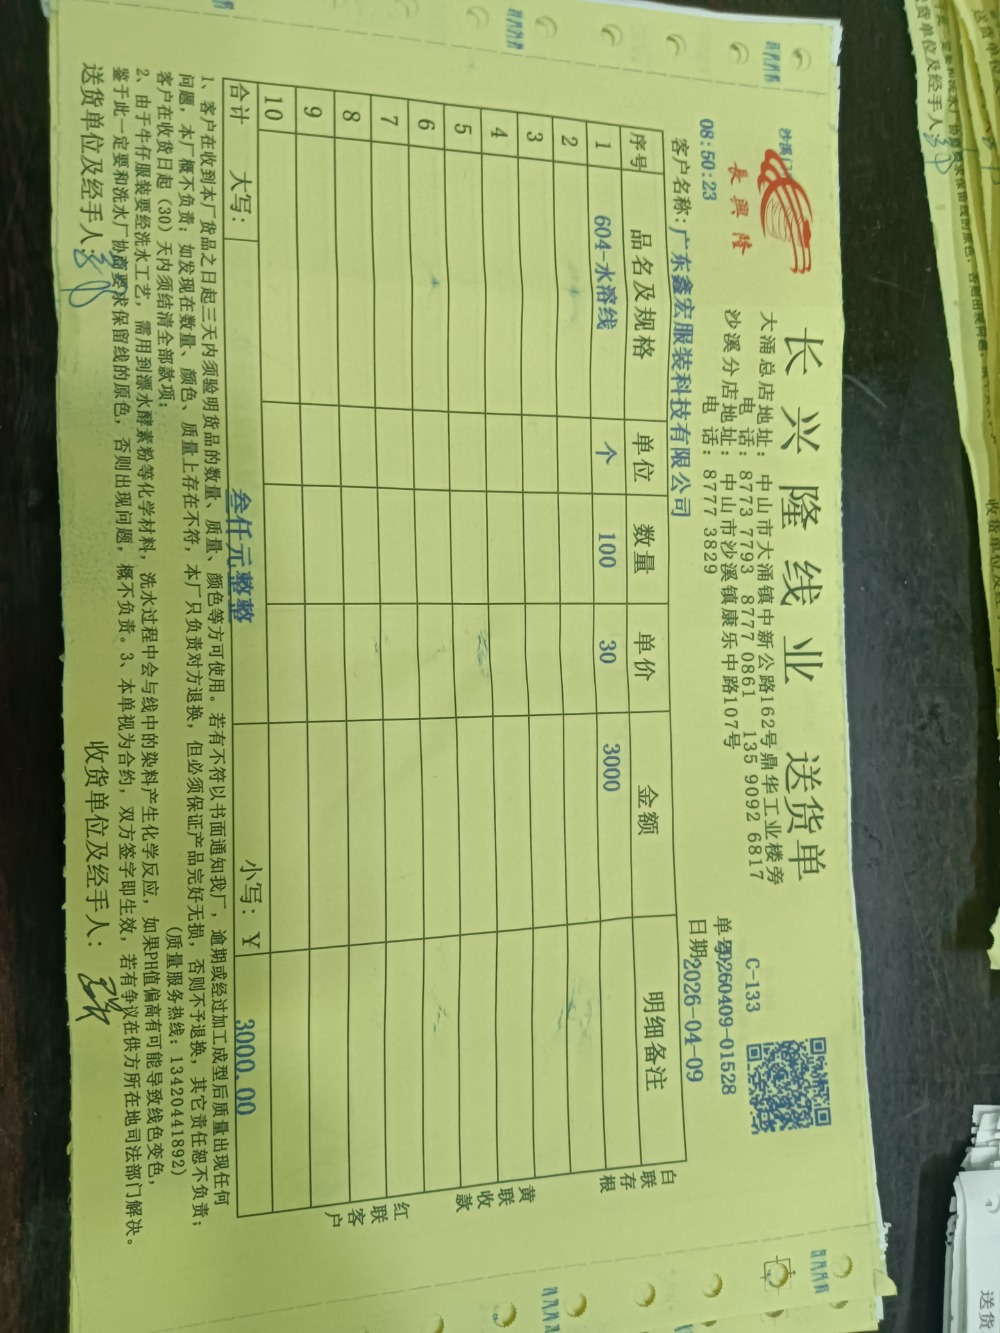 长兴隆线业 送货单
長興隆
大涌总店地址：中山市大涌镇中新公路162号鼎华工业楼旁
电 话：8773 7793 8777 0861 135 9092 6817
沙溪分店地址：中山市沙溪镇康乐中路107号
电 话：8777 3829
C-133
08:50:23
日期 2026-04-09
客户名称：广东鑫宏服装科技有限公司
序号 品名及规格 单位 数量 单价 金额 明细备注
1 604-水溶线 个 100 30 3000
2
3
4
5
6
7
8
9
10
合计 大写： 叁仟元整整 小写：￥ 3000.00
白联存根
黄联收款
红联客户
1、客户在收到本厂货品之日起三天内须验明货品的数量、质量、颜色等方可使用。若有不符以书面通知我厂，逾期或经过加工成型后质量出现任何
问题，本厂概不负责；如发现在数量、颜色、质量上存在不符，本厂只负责对方退换，但必须保证产品完好无损，否则不予退换，其它责任恕不负责；
客户在收货日起（30）天内须结清全部款项； （质量服务热线：13420441892）
2、由于牛仔服装要经洗水工艺，需用到漂水酵素粉等化学材料，洗水过程中会与线中的染料产生化学反应，如果PH值偏高有可能导致线色变色，
鉴于此一定要和洗水厂协商要求保留线的原色，否则出现问题，概不负责。3、本单视为合约，双方签字即生效，若有争议在供方所在地司法部门解决。
送货单位及经手人： 收货单位及经手人：
送货